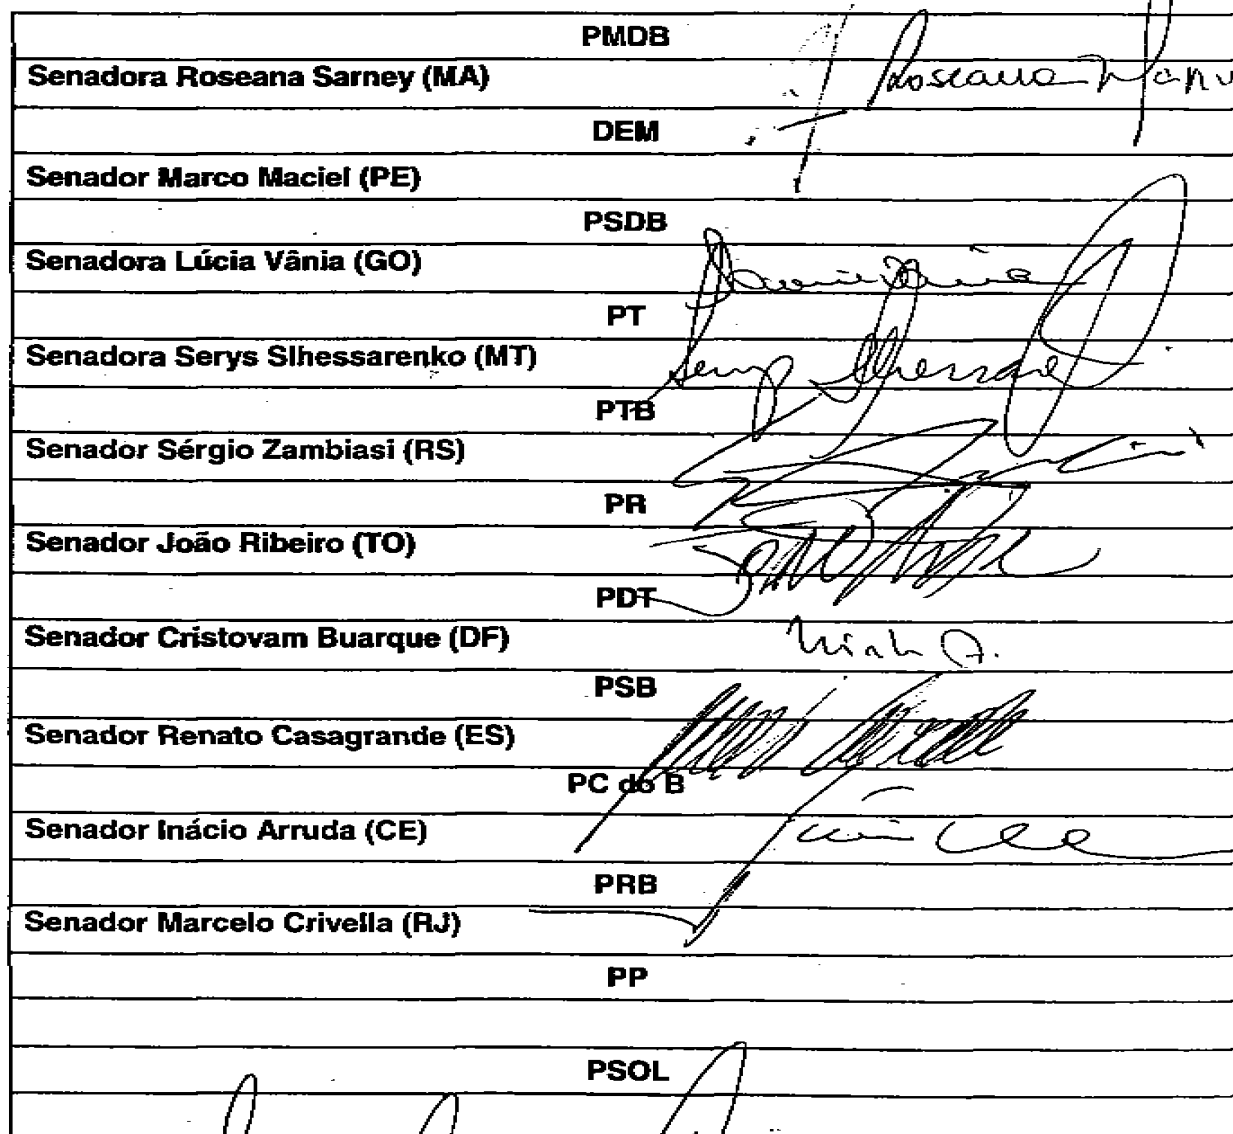 PMDB
Senadora Roseana Sarney (MA) Roseana
DEM
Senador Marco Maciel (PE)
PSDB
Senadora Lúcia Vânia (GO)
PT
Senadora Serys Slhessarenko (MT) Serys
PTB
Senador Sérgio Zambiasi (RS)
PR
Senador João Ribeiro (TO)
PDT
Senador Cristovam Buarque (DF)
PSB
Senador Renato Casagrande (ES)
PC do B
Senador Inácio Arruda (CE)
PRB
Senador Marcelo Crivella (RJ)
PP
PSOL